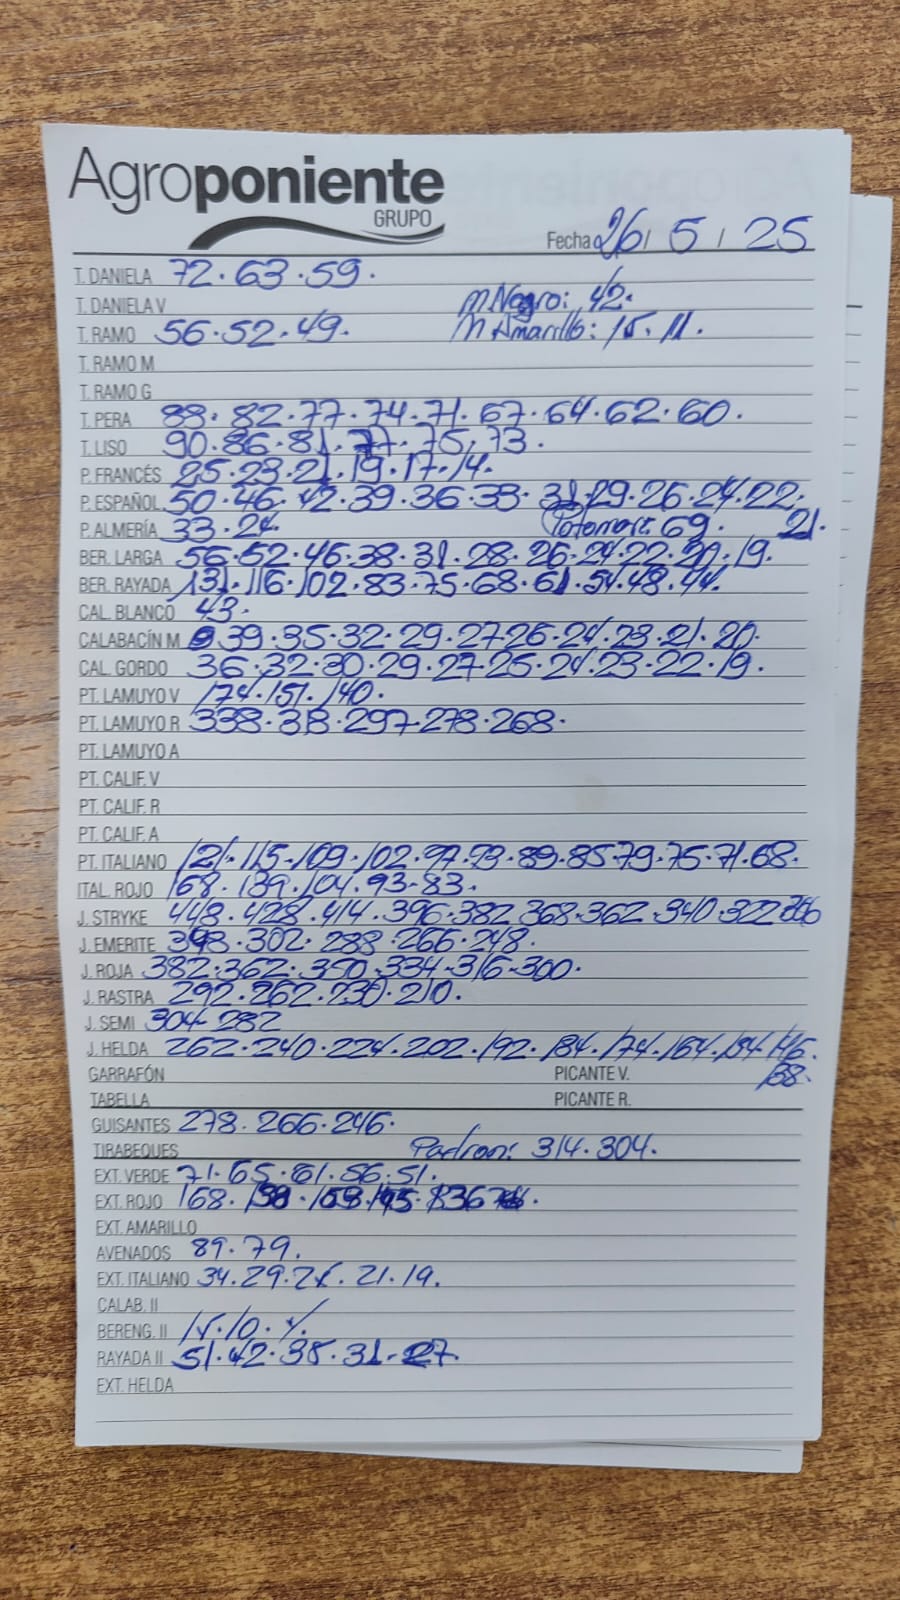 Agroponiente
GRUPO
Fecha 26 / 5 / 25
T. DANELA 72.63.59.
T. DANIELA V M. Negro: 42.
T. RAMO 56.52.49. M Amarillo: 15.11.
T. RAMO M
T. RAMO G
T. PERA 88.82.77.74.71.67.64.62.60.
T. LISO 90.86.81.77.75.73.
P. FRANCÉS 25.23.21.19.17.14.
P. ESPAÑOL 50.46.42.39.36.33.31.29.26.24.22.
P. ALMERÍA 33.24. 69. 21.
BER. LARGA 56.52.46.38.31.28.26.24.22.20.19.
BER. RAYADA 131.116.102.83.75.68.61.54.48.44.
CAL. BLANCO 43.
CALABACÍN M 39.35.32.29.27.26.24.23.21.20.
CAL. GORDO 36.32.30.29.27.25.24.23.22.19.
PT. LAMUYO V 174.151.140.
PT. LAMUYO R 338.313.297.278.268.
PT. LAMUYO A
PT. CALIF. V
PT. CALIF. R
PT. CALIF. A
PT. ITALIANO 121.115.109.102.97.93.89.85.79.75.71.68.
ITAL. ROJO 168.139.104.93.83.
J. STRYKE 448.428.414.396.382.368.362.340.322
J. EMERITE 302.288.266.248.
J. ROJA 382.362.350.334.316.300.
J. RASTRA 292.262.230.210.
J. SEMI 304.282
J. HELDA 262.240.224.202.192.184.174.164.154.146.
GARRAFÓN PICANTE V. 138.
TABELLA PICANTE R.
GUISANTES 278.266.246.
TIRABEQUES Padron: 314.304.
EXT. VERDE 71.65.61.56.51.
EXT. ROJO 168.
EXT. AMARILLO
AVENADOS 89.79.
EXT. ITALIANO 34.29.21.19.
CALAB. II
BERENG. II 15.10.
RAYADA II 51.42.35.31.27.
EXT. HELDA